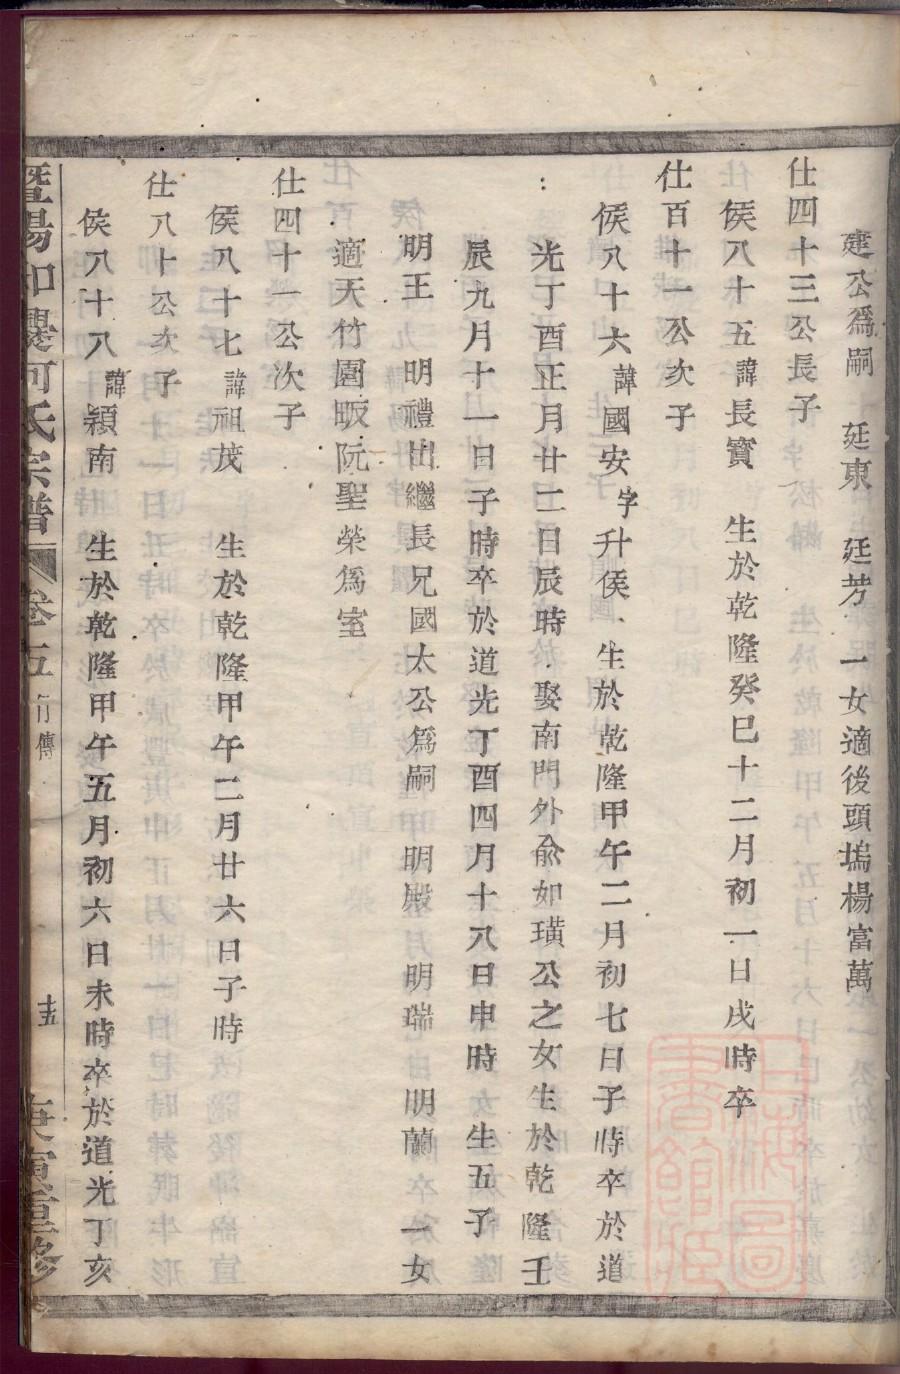 建公爲嗣 廷東 廷芳 一女適後頭塢楊富萬
仕四十三公長子
侯八十五諱長寳 生於乾隆癸巳十二月初一日戌時卒
仕百十一公次子
侯八十六諱國安字升侯 生於乾隆甲午二月初七日子時卒於道
光丁酉正月廿二日辰時娶南門外俞如璜公之女生於乾隆壬
辰九月十一日子時卒於道光丁酉四月十八日申時 生五子
明王 明禮出繼長兄國太公爲嗣 明殿 明瑞 明蘭 一女
適天竹園畈阮聖榮爲室
仕四十一公次子
侯八十七諱祖茂 生於乾隆甲午二月廿六日子時
仕八十公次子
侯八十八諱穎南 生於乾隆甲午五月初六日未時卒於道光丁亥
暨陽 何氏宗譜 卷五 傳 十五 重修
上海圖書館藏